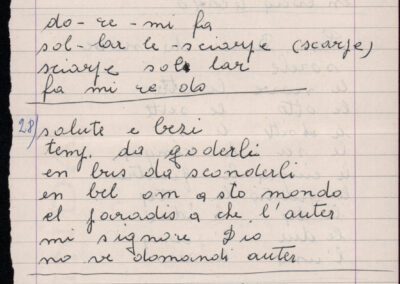 do-re-mi fa
sol-lar le-sciarpe (scarpe)
sciarpe sol lar
fa mi re do
28) salute e bezi
temp. da goderli
en bus da sconderli
en bel om a sto mondo
el paradis a che l'auter
mi signore Dio
no ve domandi auter